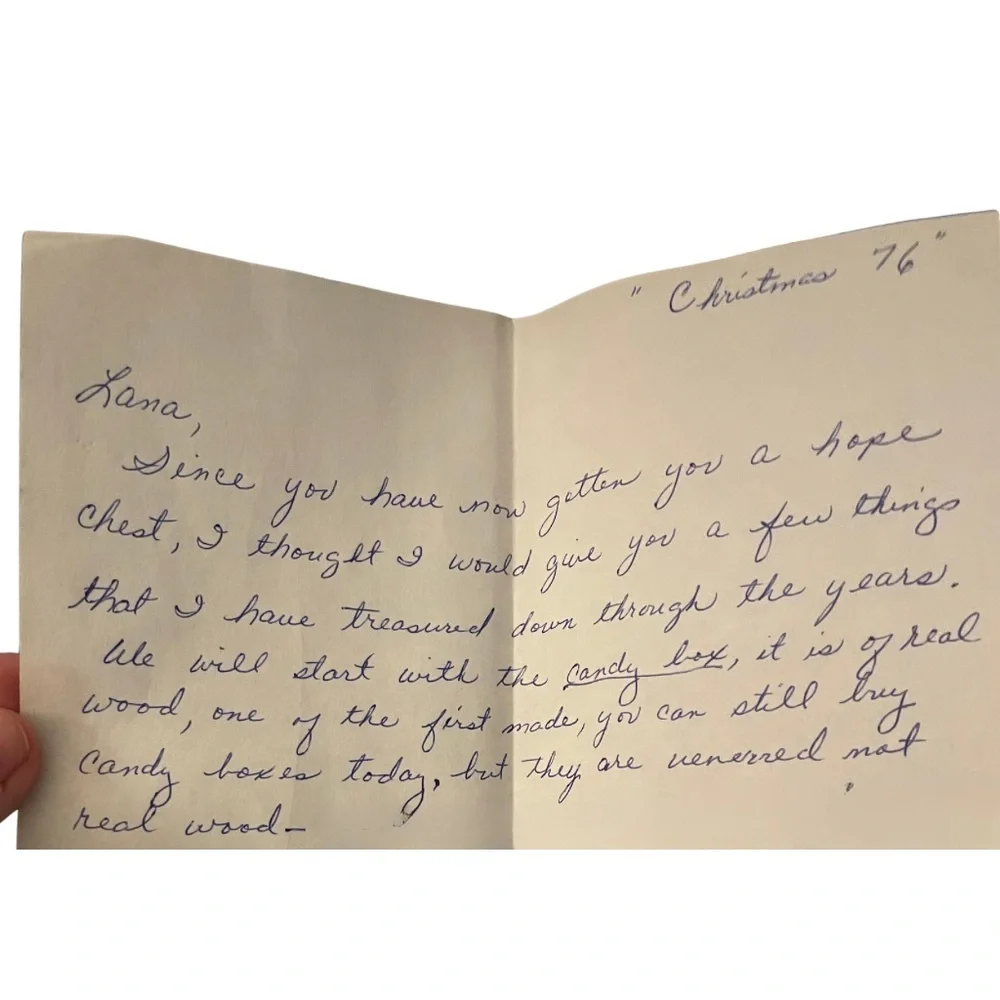 " Christmas 76 "
Lana,
Since you have now gotten you a hope
chest, I thought I would give you a few things
that I have treasured down through the years.
We will start with the candy box, it is of real
wood, one of the first made, you can still buy
candy boxes today, but they are venerred not
real wood—